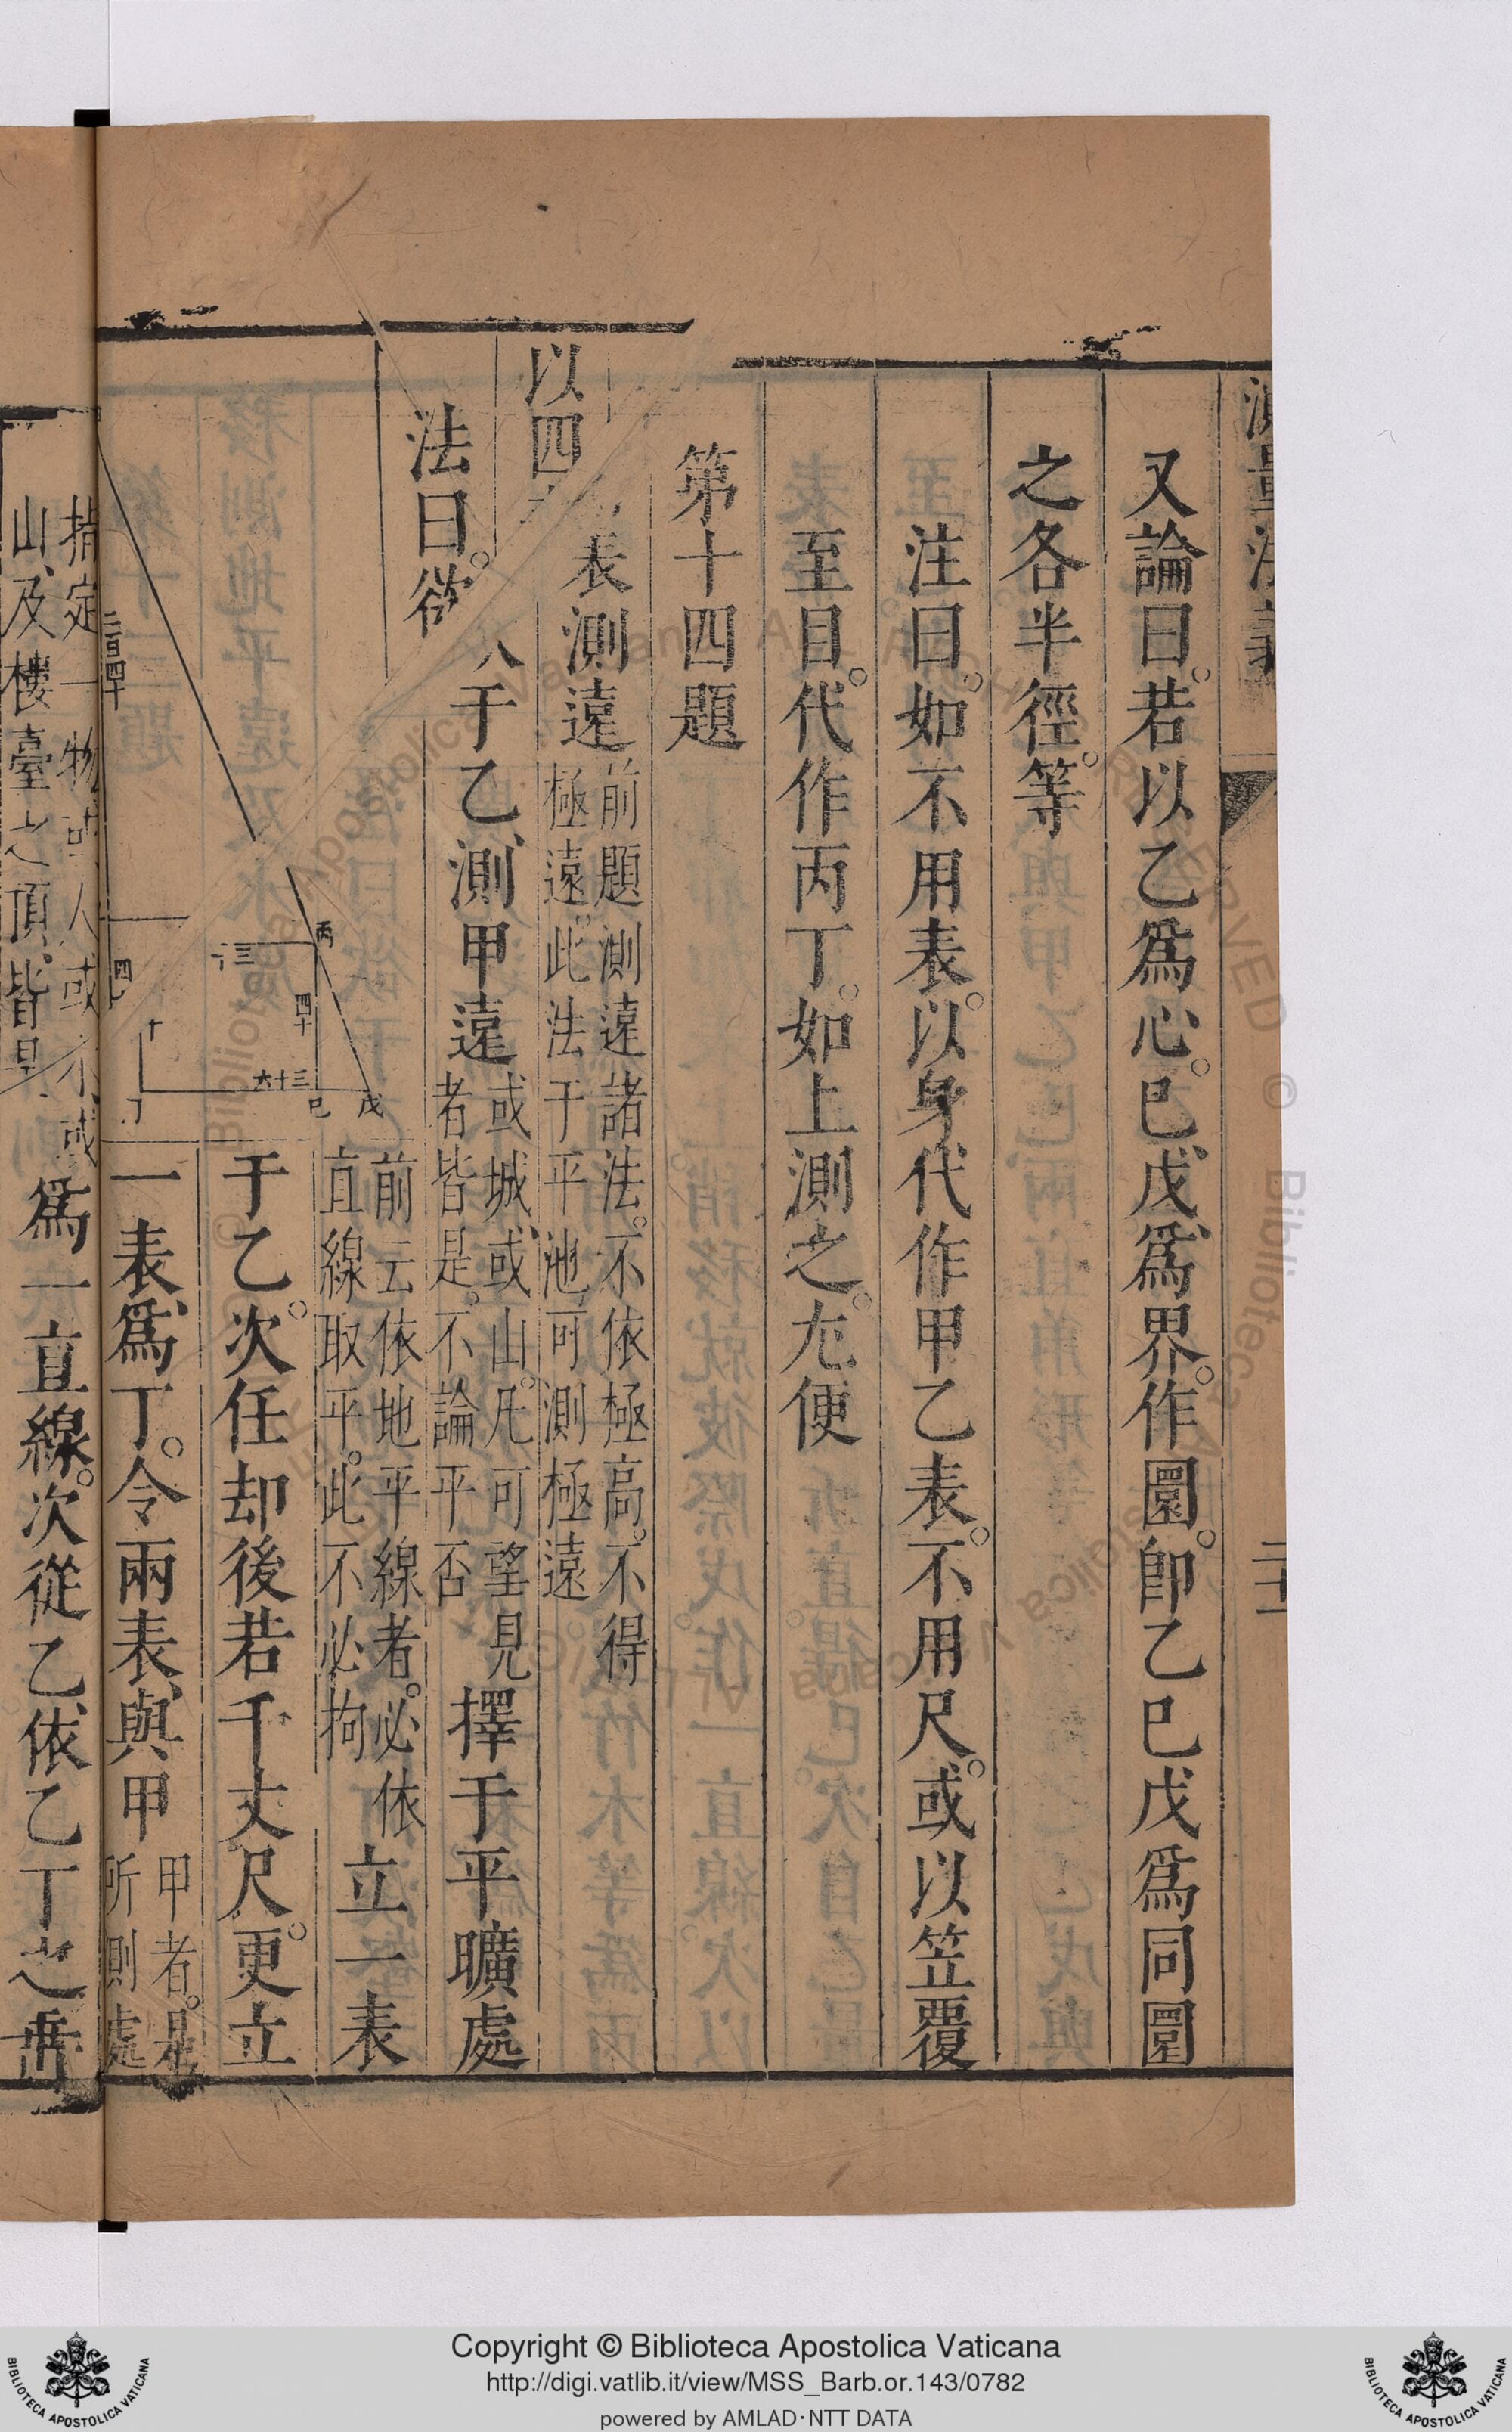 又論曰。若以乙爲心。巳、戊、爲界。作圜。卽乙巳戊爲同圜
之各半徑。等
注曰。如不用表。以身代作甲乙表。不用尺。或以笠覆
至目。代作丙丁。如上測之。尤便
第十四題
以四表測遠
前題測遠諸法。不依極高。不得
極遠。此法于平地可測極遠
法曰。欲人于乙、測甲遠
或城、或山。凡可望見
者皆是。不論平否
擇于平曠處
前云依地平線者。必依
直線取平。此不必拘
立一表
于乙。次任却後若干丈尺。更立
一表、爲丁。令兩表、與甲
甲者。是
所測處
指定一物或人或木或
山、及樓臺之頂、皆是
爲一直線。次從乙、依乙丁之垂
二百四十
四十
丙
三十
四十
三十六
丁
巳
戊
二十一
Copyright © Biblioteca Apostolica Vaticana
http://digi.vatlib.it/view/MSS_Barb.or.143/0782
powered by AMLAD·NTT DATA
BIBLIOTECA APOSTOLICA VATICANA
BIBLIOTECA APOSTOLICA VATICANA